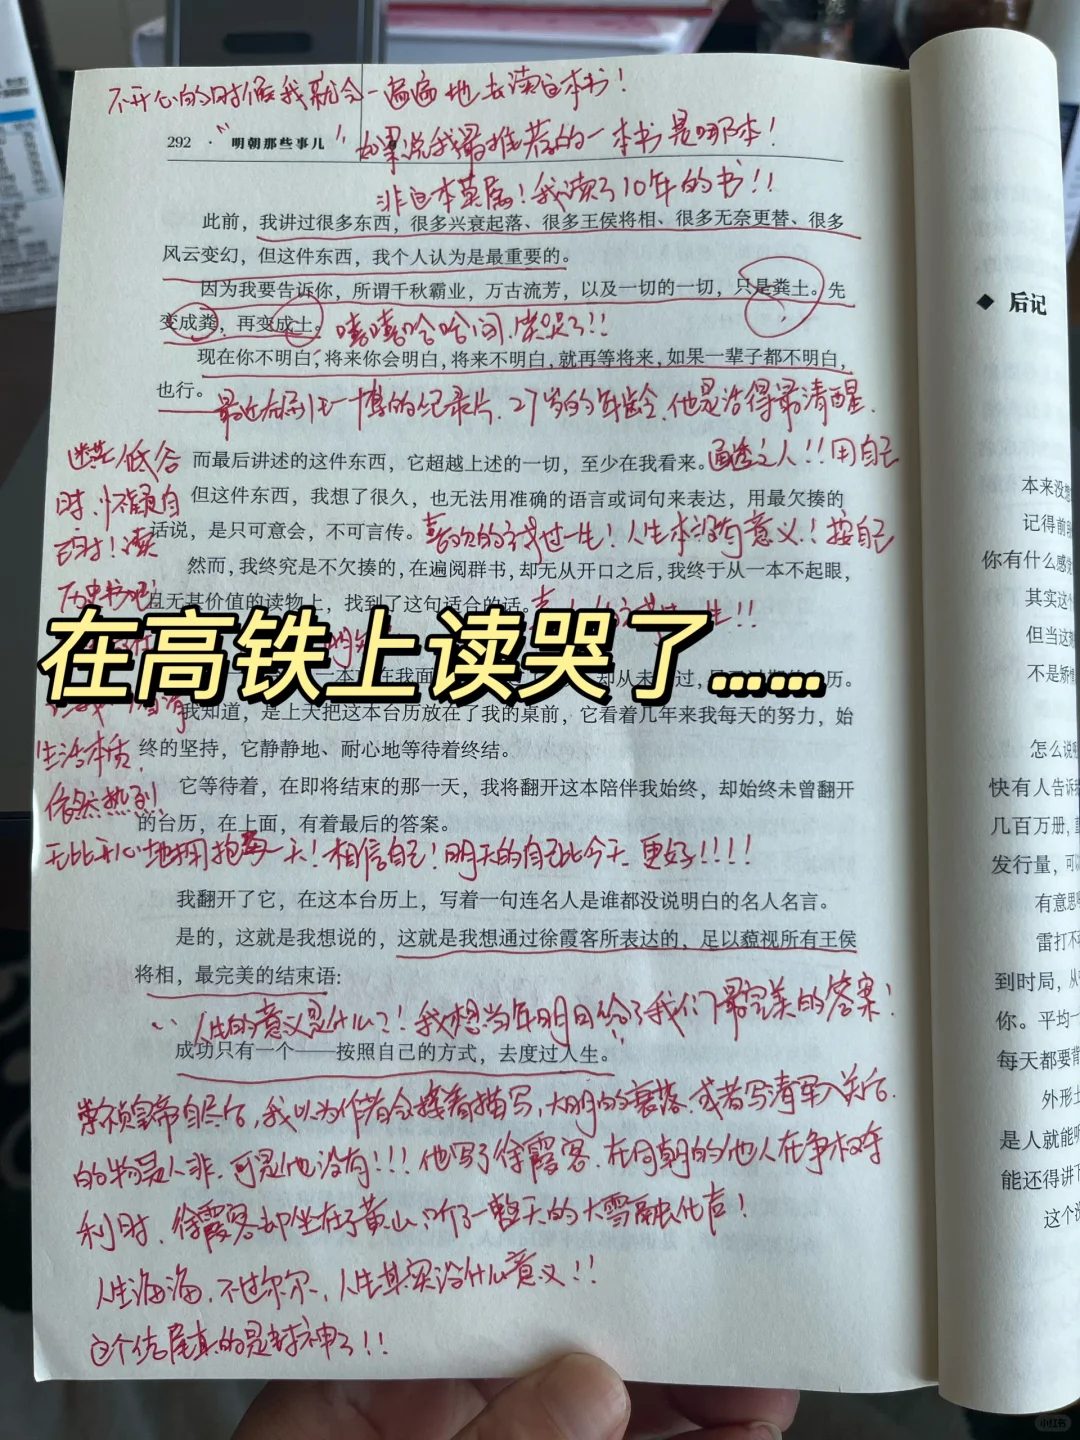 不开心的时候我就会一遍遍地去读这本书！
292 · 明朝那些事儿
如果说我最推荐的一本书是哪本！
非这本莫属！我读了10年的书！！
此前，我讲过很多东西，很多兴衰起落、很多王侯将相、很多无奈更替、很多
风云变幻，但这件东西，我个人认为是最重要的。
因为我要告诉你，所谓千秋霸业，万古流芳，以及一切的一切，只是粪土。先
变成粪，再变成土。
嘻嘻哈哈间，读哭了！！
现在你不明白，将来你会明白，将来不明白，就再等将来，如果一辈子都不明白，
也行。
27岁的年龄，他是活得最清醒、
通透之人！！用自己
而最后讲述的这件东西，它超越上述的一切，至少在我看来。
但这件东西，我想了很久，也无法用准确的语言或词句来表达，用最欠揍的
话说，是只可意会，不可言传。
喜欢的方式过一生！人生本没有意义！按自己
然而，我终究是不欠揍的，在遍阅群书，却无从开口之后，我终于从一本不起眼，
且无甚价值的读物上，找到了这句适合的话。
迷茫低谷
时，怀疑自
己时！读
历史书吧
在高铁上读哭了……
我知道，是上天把这本台历放在了我的桌前，它看着几年来我每天的努力，始
终的坚持，它静静地、耐心地等待着终结。
它等待着，在即将结束的那一天，我将翻开这本陪伴我始终，却始终未曾翻开
的台历，在上面，有着最后的答案。
生活本质，
依然热烈！
无比开心地拥抱每一天！相信自己！明天的自己比今天更好！！！！
我翻开了它，在这本台历上，写着一句连名人是谁都没说明白的名人名言。
是的，这就是我想说的，这就是我想通过徐霞客所表达的，足以藐视所有王侯
将相，最完美的结束语：
人生的意义是什么？！我想当年明月给了我们最完美的答案！
成功只有一个——按照自己的方式，去度过人生。
崇祯皇帝自尽后，我以为作者会接着描写，大明的衰落，或者写清军入关后
的物是人非，可是他没有！！！他写了徐霞客，在同朝的他人在争权夺
利时，徐霞客却坐在了黄山，听了一整天的大雪融化声！
人生海海，不过尔尔，人生其实没什么意义！！
这个结尾真的是封神了！！
◆ 后记
本来没想
记得前
你有什么感
其实这个
但当这
不是矫情
怎么说
快有人告诉
几百万册，
发行量，可
有意思
雷打不
到时局，从
你。平均一
每天都要
外形
是人就能
能还得讲
这个
小红书